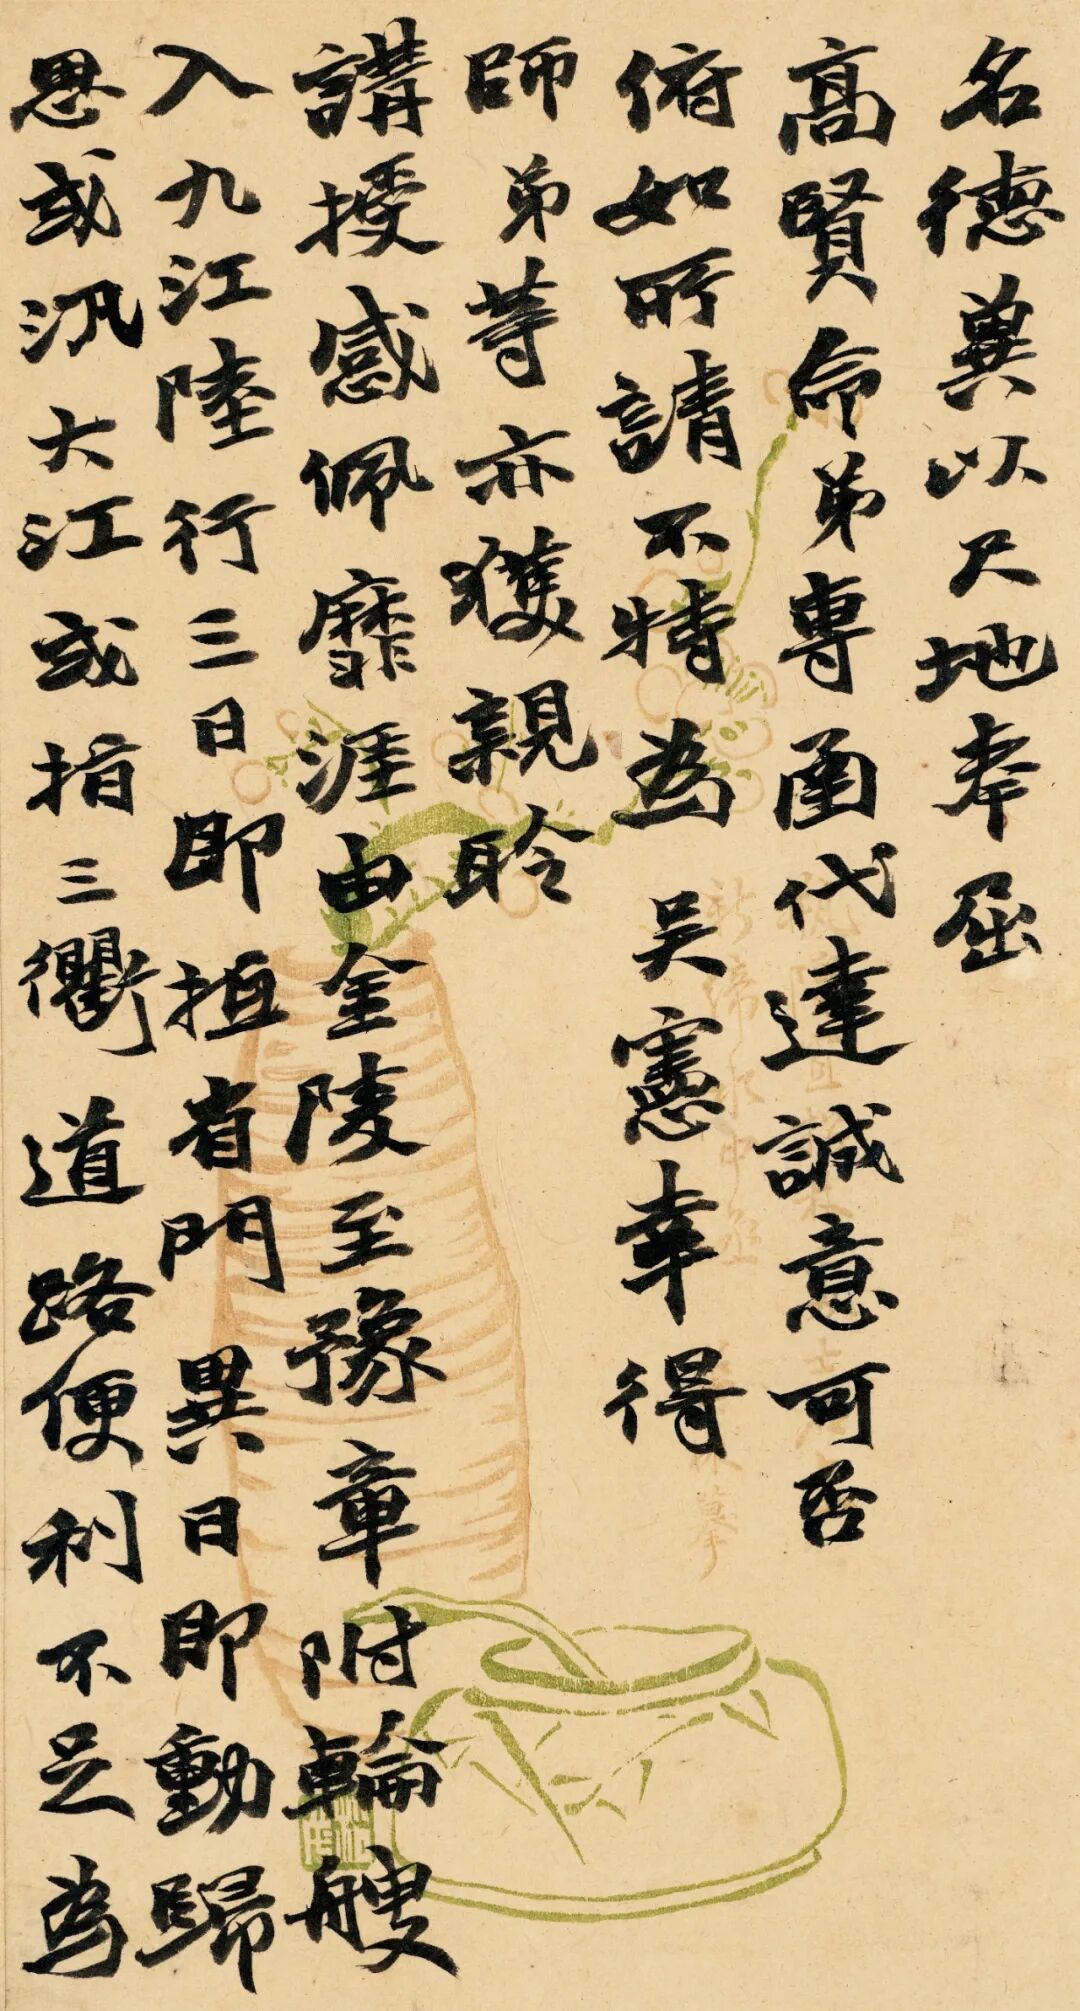 名德冀以尺地奉屈
高賢命弟專函代達誠意可否
俯如所請不特為吳憲幸得
師弟等亦獲親聆
講授感佩靡涯由金陵至豫章附輪艘
入九江陸行三日即抵省門異日即動歸
思或汎大江或指三衢道路便利不足為